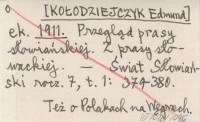 [KOŁODZIEJCZYK Edmund]
ek. 1911. Przegląd prasy
słowiańskiej. Z prasy sło-
wackiej. — Świat Słowiań-
ski rocz. 7, t. 1: 379-380.
Też o Polakach na Węgrzech.